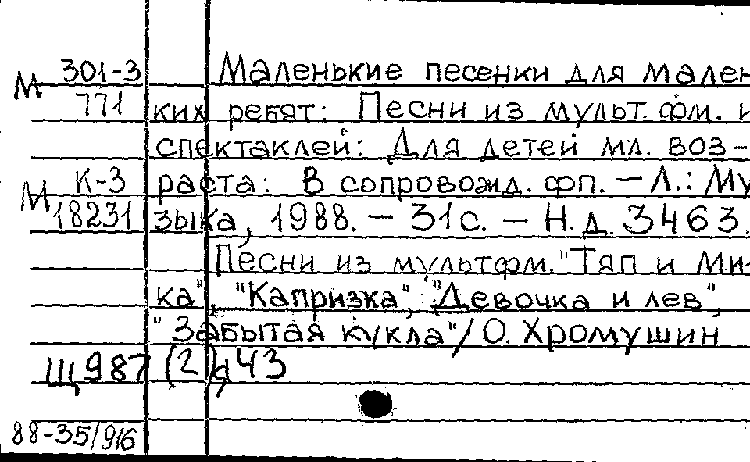 М 301-3 Маленькие песенки для мален
771 ких ребят: Песни из мульт.фм. и
спектаклей: Для детей мл. воз-
М К-3 раста: В сопровожд. фп. — Л.: Му
18231 зыка, 1988. — 31с. — Н.д. 3463.
Песни из мультфм. "Тяп и Ми-
ка", "Капризка", "Девочка и лев",
"Забытая кукла"/О. Хромушин
Щ987 (2)я43
88-35/916